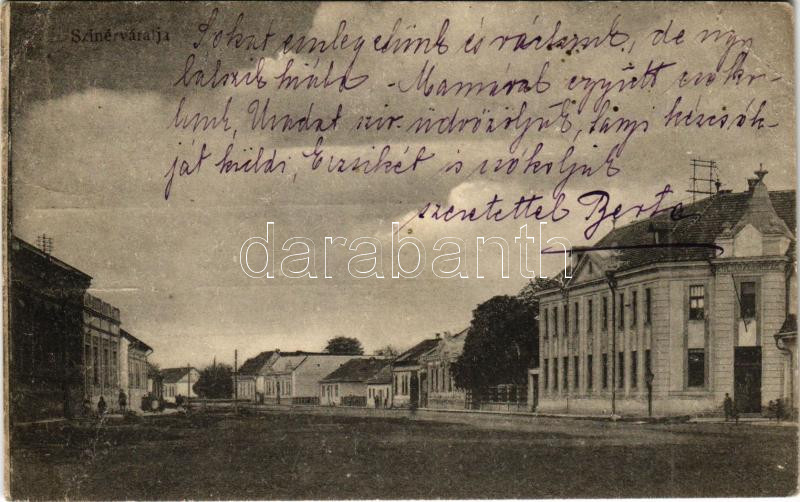 Szinérváralja
Sokat emlegetünk és várlunk, de úgy
látszik hiába - Mamával együtt csoko-
lunk, Uradat sziv. üdvözöljük, Lanyi kézcsók-
ját küldi, Erzsikét is csókoljuk
szeretettel Berta
darabanth